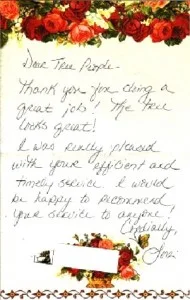 Dear Tree People-
Thank you for doing a
great job! The tree
looks great!
I was really pleased
with your efficient and
timely service. I would
be happy to recommend
your service to anyone.
Cordially,